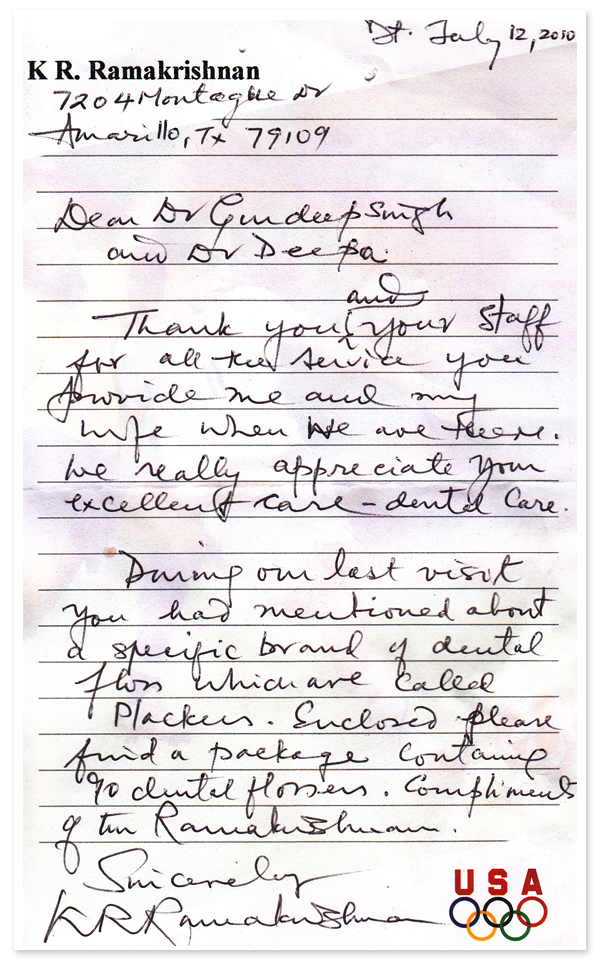 Dt. July 12, 2010
K R. Ramakrishnan
7204 Montague Dr
Amarillo, Tx 79109
Dear Dr Gurdeep Singh
and Dr Deepa
and
Thank you, your staff
for all the service you
provide me and my
wife when we are there.
We really appreciate your
excellent care - dental care.
During our last visit
you had mentioned about
a specific brand of dental
floss which are called
Plackers. Enclosed please
find a package containg
90 dental flossers. Compliments
of the Ramakrishnan.
Sincerely
K R Ramakrishnan
USA